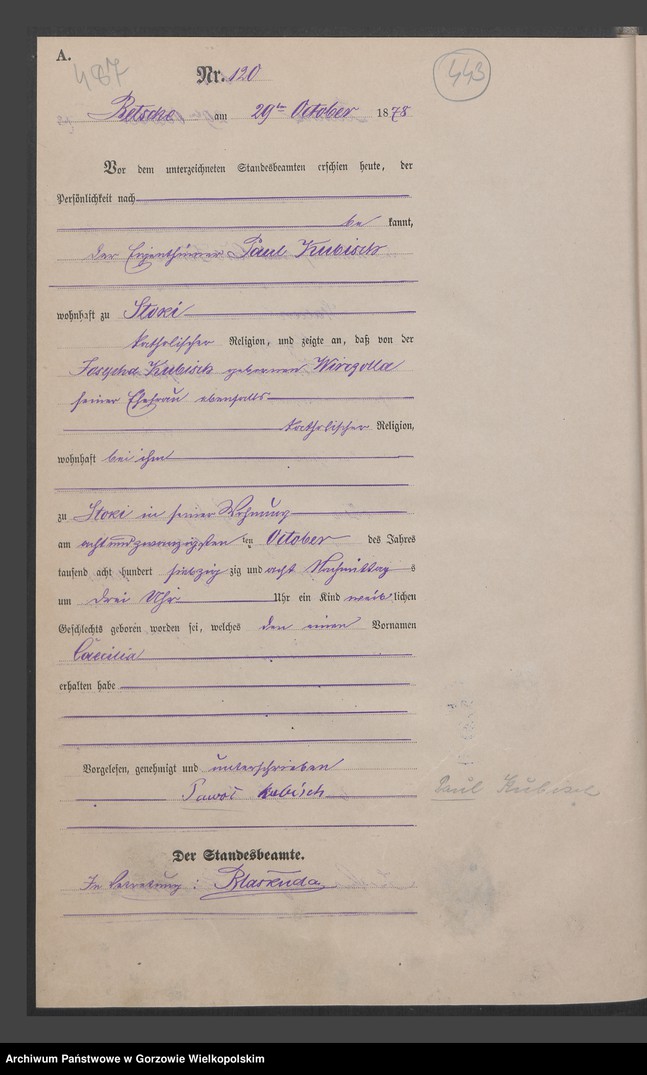 A.
487
443
Nr. 120
Betsche am 29ten October 1878
Vor dem unterzeichneten Standesbeamten erschien heute, der
Persönlichkeit nach
be kannt,
der Eigenthümer Paul Kubisch
wohnhaft zu Stoki
katholischer Religion, und zeigte an, daß von der
Kubisch geborenen
seiner Ehefrau ebenfalls
katholischer Religion,
wohnhaft bei ihm
zu Stoki in seiner Wohnung
am achtundzwanzigsten ten October des Jahres
tausend acht hundert siebzig zig und acht Nachmittag s
um drei Uhr Uhr ein Kind weib lichen
Geschlechts geboren worden sei, welches den einen Vornamen
Caecilia
erhalten habe
Vorgelesen, genehmigt und unterschrieben
Kubisch
Paul
Der Standesbeamte.
In Vertretung:
Archiwum Państwowe w Gorzowie Wielkopolskim